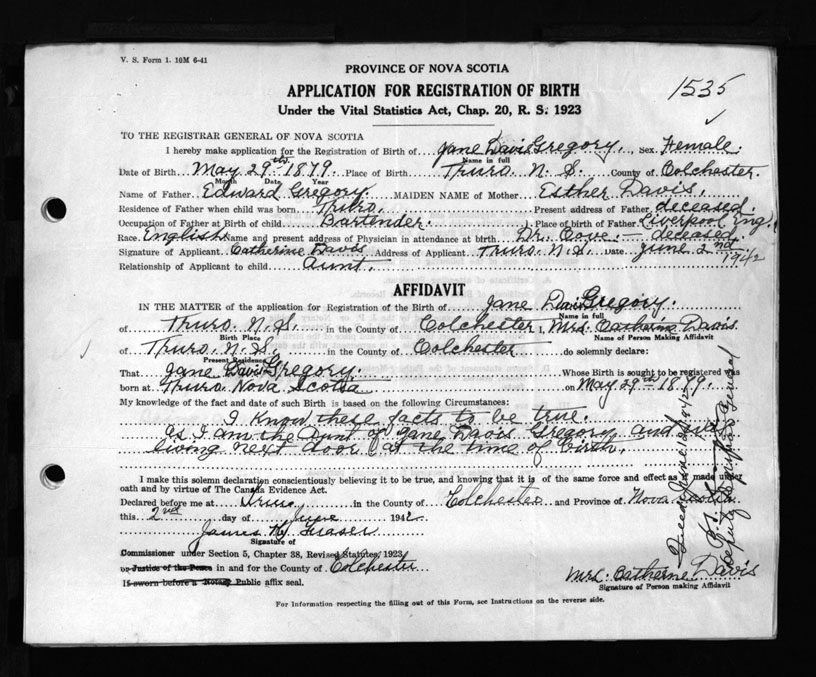 V. S. Form 1. 10M 6-41
PROVINCE OF NOVA SCOTIA
APPLICATION FOR REGISTRATION OF BIRTH
1535
Under the Vital Statistics Act, Chap. 20, R. S. 1923
TO THE REGISTRAR GENERAL OF NOVA SCOTIA
I hereby make application for the Registration of Birth of Jane Davis Gregory. Sex Female.
Name in full
Date of Birth May 29th 1879. Place of Birth Truro N. S. County of Colchester.
Month Date Year
Name of Father Edward Gregory. MAIDEN NAME of Mother Esther Davis.
Residence of Father when child was born Truro. Present address of Father deceased.
Occupation of Father at Birth of child Bartender. Place of birth of Father Liverpool Eng.
Race English Name and present address of Physician in attendance at birth Dr. Cove. — deceased
Signature of Applicant Catherine Davis Address of Applicant Truro. N.S. Date June 2nd 1942
Relationship of Applicant to child Aunt.
AFFIDAVIT
IN THE MATTER of the application for Registration of the Birth of Jane Davis Gregory.
Name in full
of Truro. N.S. in the County of Colchester I, Mrs. Catherine Davis.
Birth Place Name of Person Making Affidavit
of Truro. N. S. in the County of Colchester do solemnly declare:
Present Residence
That Jane Davis Gregory. Whose Birth is sought to be registered was
born at Truro Nova Scotia on May 29th 1879.
My knowledge of the fact and date of such Birth is based on the following Circumstances:
I know these facts to be true.
as I am the Aunt of Jane Davis Gregory and was
living next door at the time of birth.
I make this solemn declaration conscientiously believing it to be true, and knowing that it is of the same force and effect as if made under
oath and by virtue of The Canada Evidence Act.
Declared before me at Truro in the County of Colchester and Province of Nova Scotia
this 2nd day of June 1942
James H. Fraser
Signature of
Commissioner under Section 5, Chapter 38, Revised Statutes, 1923
or Justice of the Peace in and for the County of Colchester
If sworn before a Notary Public affix seal.
Mrs. Catherine Davis
Signature of Person making Affidavit
For Information respecting the filling out of this Form, see Instructions on the reverse side.
Deputy Registrar General